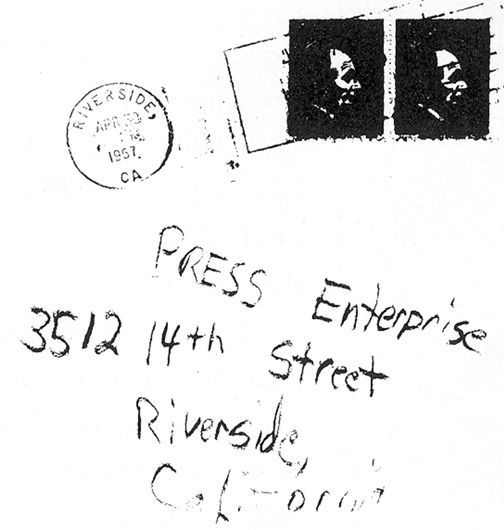 RIVERSIDE,
APR 30
PM
1967
CA
PRESS Enterprise
3512 14th Street
Riverside,
California